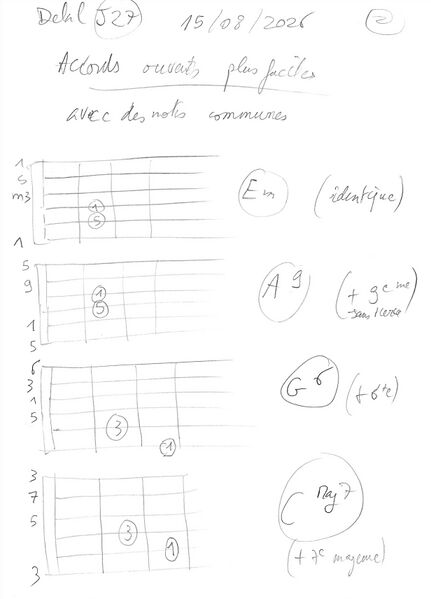 Delal J27 15/08/2026 2
Accords ouverts plus faciles
avec des notes communes
1
5
m3
1
5
1
Em (identique)
5
9
1
5
1
5
A9 (+ 9e me
sans tierce)
6
3
1
5
3
1
G6 (+ 6te)
3
7
5
3
1
3
C Maj7
(+ 7e majeure)